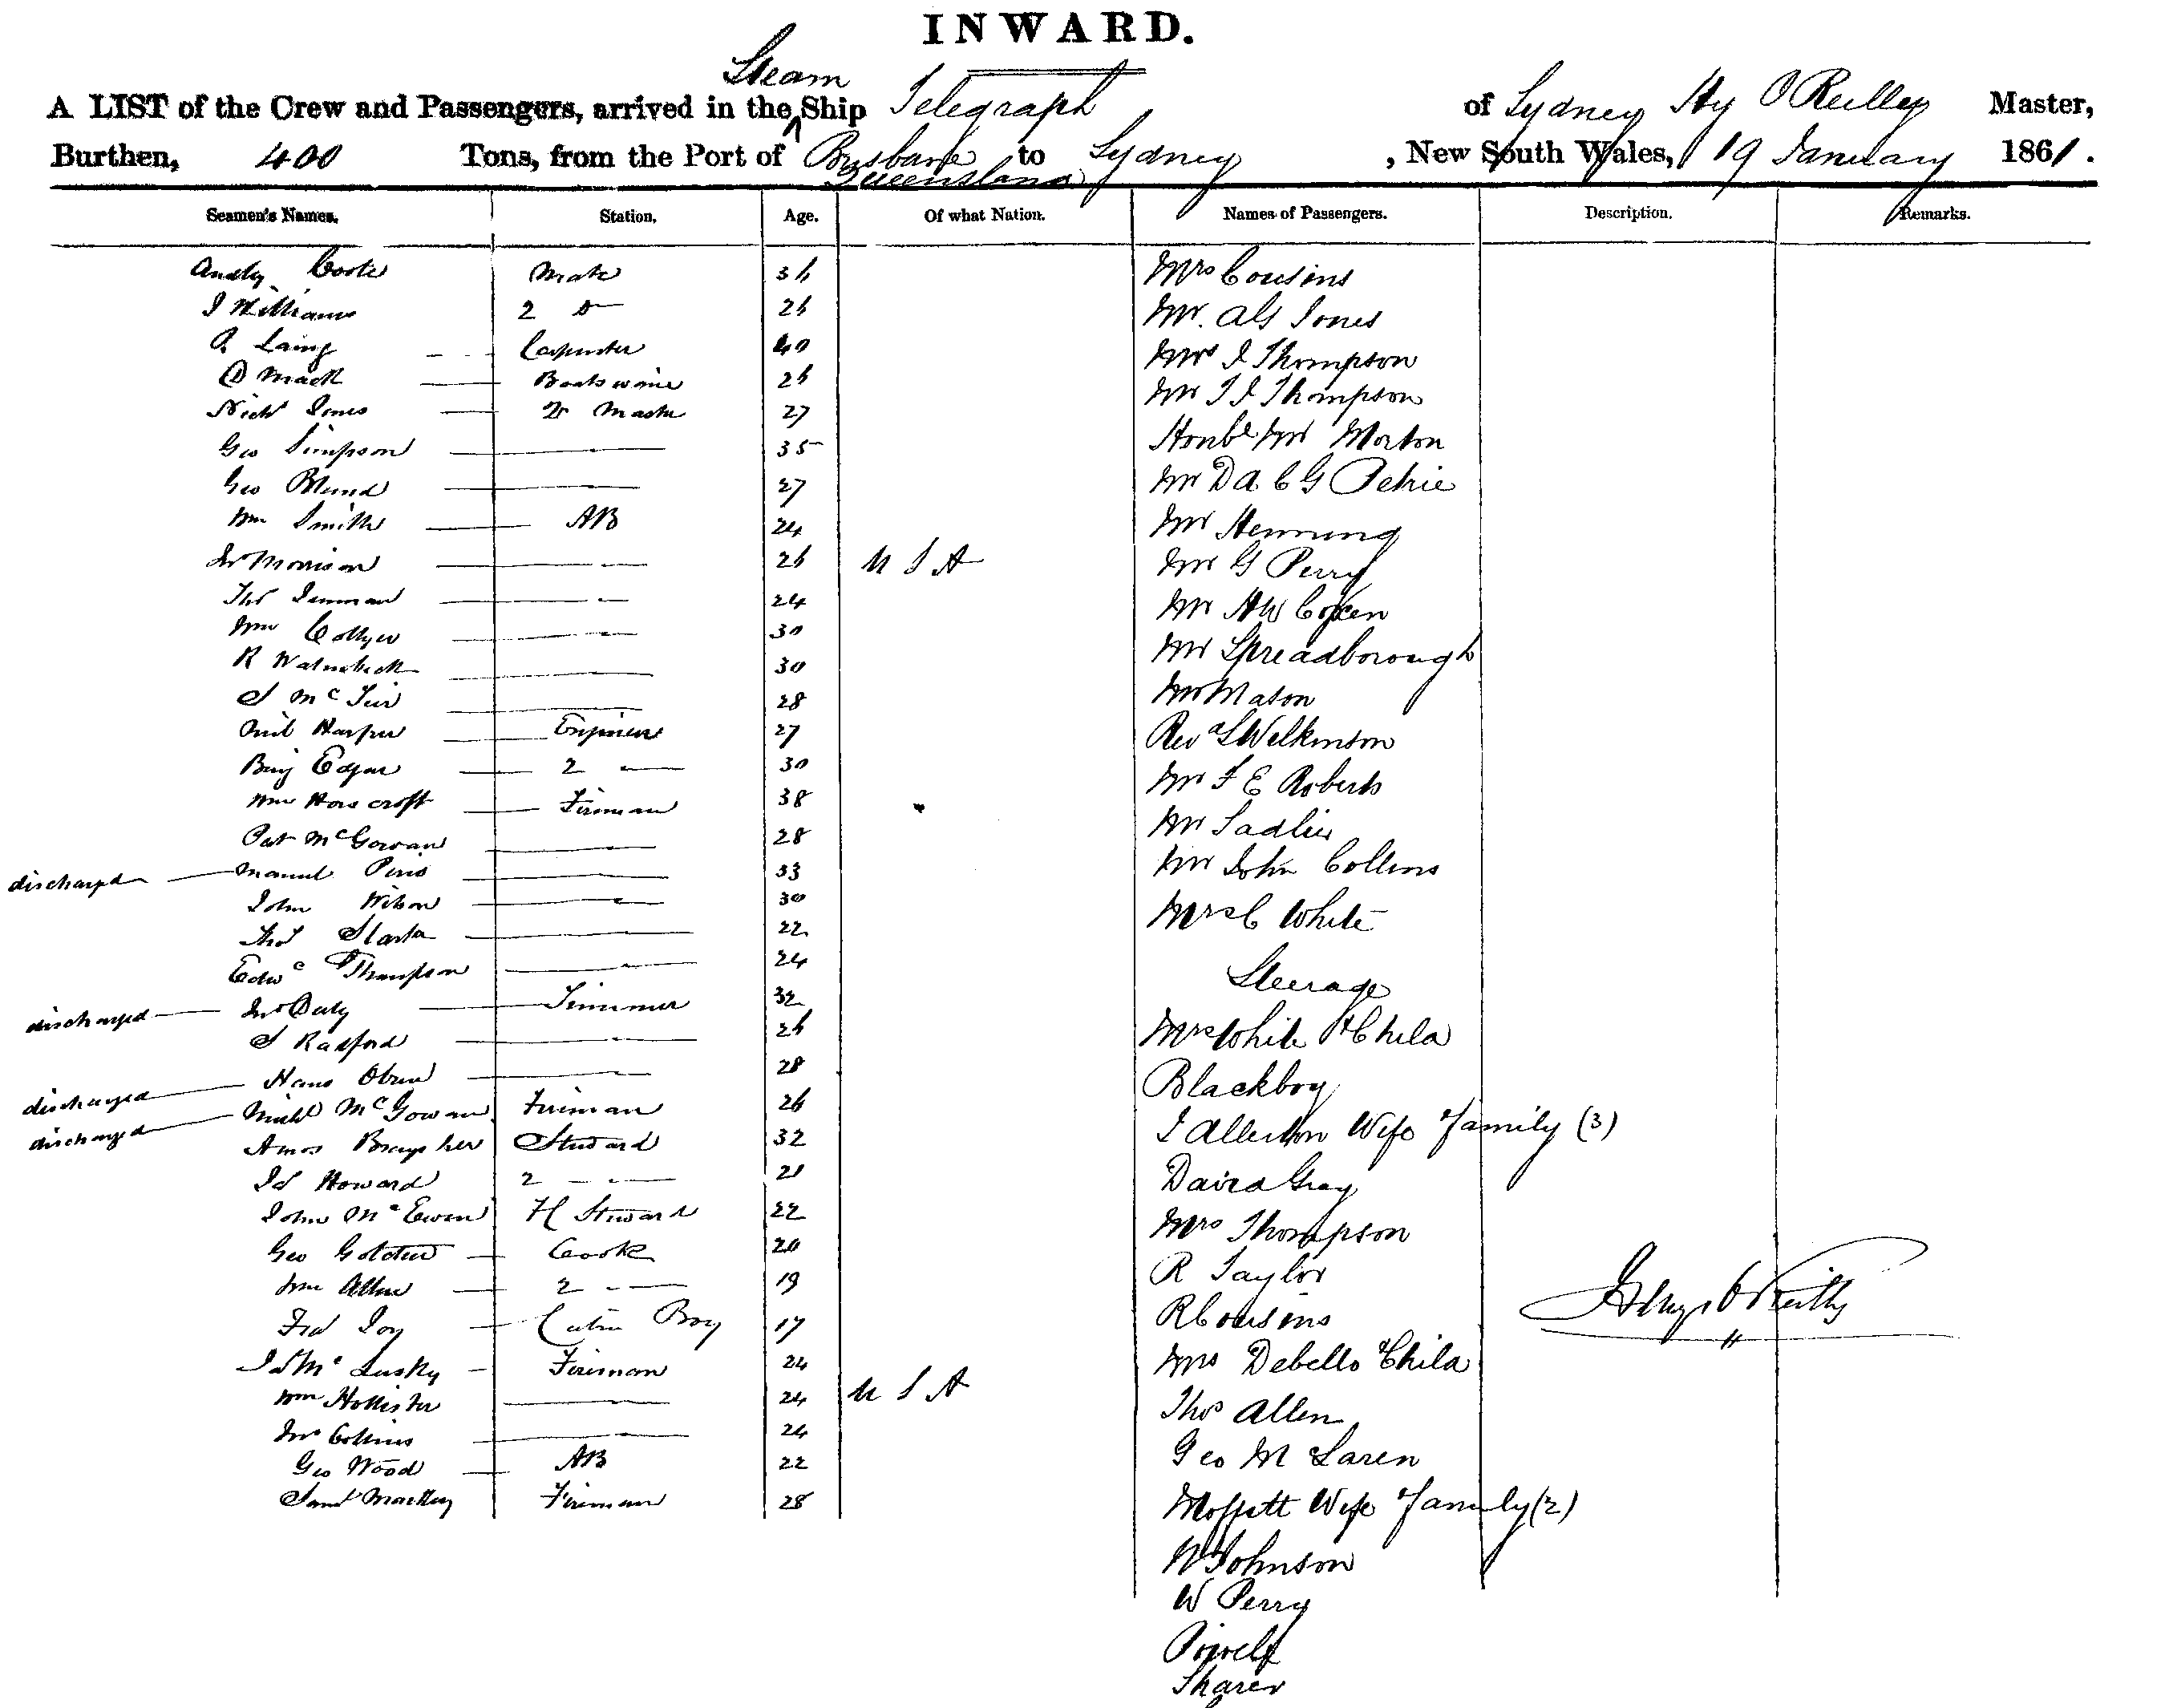 INWARD.
Steam
A LIST of the Crew and Passengers, arrived in the Ship Telegraph of Sydney Hy O Reilley Master,
Burthen, 400 Tons, from the Port of Brisbane to Sydney, New South Wales, 19 January 1861.
Queensland
Seamen's Names. Station. Age. Of what Nation. Names of Passengers. Description. Remarks.
Mate 36 Mrs Cousins
J Williams 2 Do 26 Mr. Jones
Laing Carpenter 40 Mrs J Thompson
Mack 26 Mr T J Thompson
Jones Qr Master 27 Honble Mr Morton
Geo Simpson 35 Mr D A C G Petrie
Geo Blund 27 Mr Henning
Wm Smith AB 24 Mr G Perry
Jno Morrison 26 U S A Mr H W Coxen
Thos Denman 24 Mr Spreadborough
Wm Collyer 30 Mr Mason
R 30 Revd Wilkinson
S Mc 28 Mr F E Roberts
Neil Harper Engineer 27 Mr Sadlier
Benj Edgar 2 30 Mr John Collins
Wm Horscroft Fireman 38 Mrs C White
Pat McGowan 28 Steerage
discharged Manuel 33 Mrs White & Child
John Wilson 30 Blackboy
Thos 22 J Allerton Wife & family (3)
Edwd Thompson 24 David Gray
discharged Jno Daly Trimmer 32 Mrs Thompson
S Radford 26 R Taylor
discharged Hans 28 R Cousins
discharged Michl McGowan Fireman 26 Mrs Debello & Child
Amos Braysher Steward 32 Thos Allen
Js Howard 2 21 Geo M Laren
John McEwen H Steward 22 Moffatt Wife & family (2)
Geo Golden Cook 20 W Johnson
Wm Allen 2 19 W Perry
Fred Joy Cabin Boy 17
Js Mc Lusky Fireman 24 Sharer
Wm Hollister 24 U S A
Jno Collins 24
Geo Wood AB 22
Saml Fireman 28
Henry O'Reilly